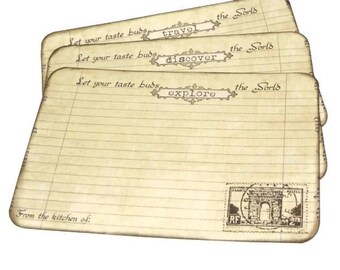 Let your taste buds travel the World
Let your taste buds discover the World
Let your taste buds explore the World
From the kitchen of: